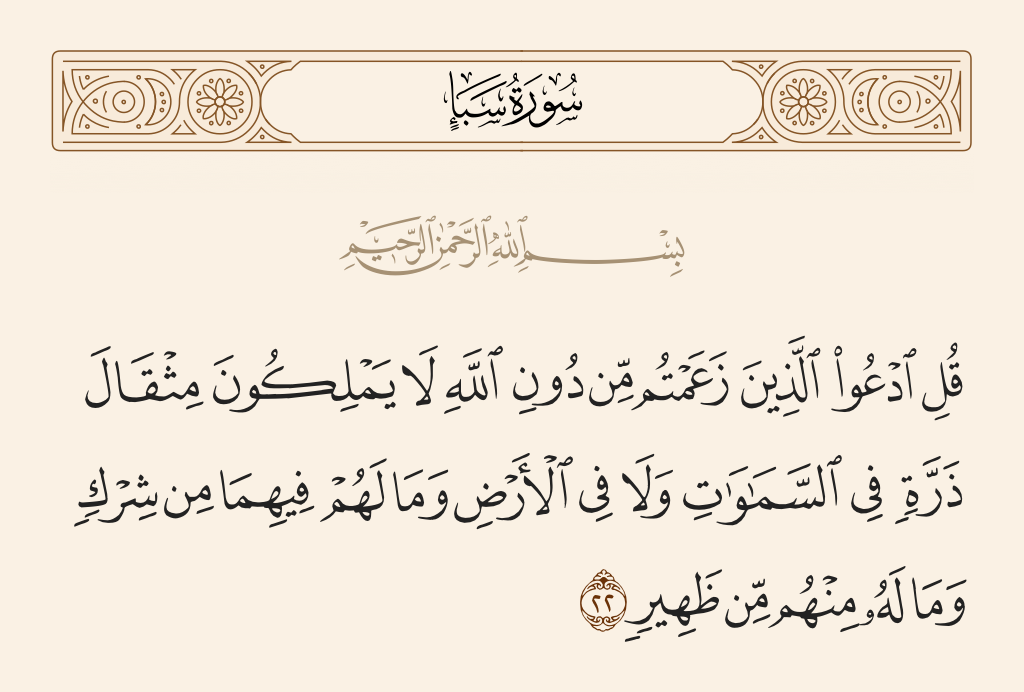 سُورَةُ سَبَإٍ
بِسْمِ ٱللَّهِ ٱلرَّحْمَٰنِ ٱلرَّحِيمِ
قُلِ ٱدْعُوا۟ ٱلَّذِينَ زَعَمْتُم مِّن دُونِ ٱللَّهِ لَا يَمْلِكُونَ مِثْقَالَ
ذَرَّةٍ فِى ٱلسَّمَٰوَٰتِ وَلَا فِى ٱلْأَرْضِ وَمَا لَهُمْ فِيهِمَا مِن شِرْكٍ
وَمَا لَهُۥ مِنْهُم مِّن ظَهِيرٍ ٢٢